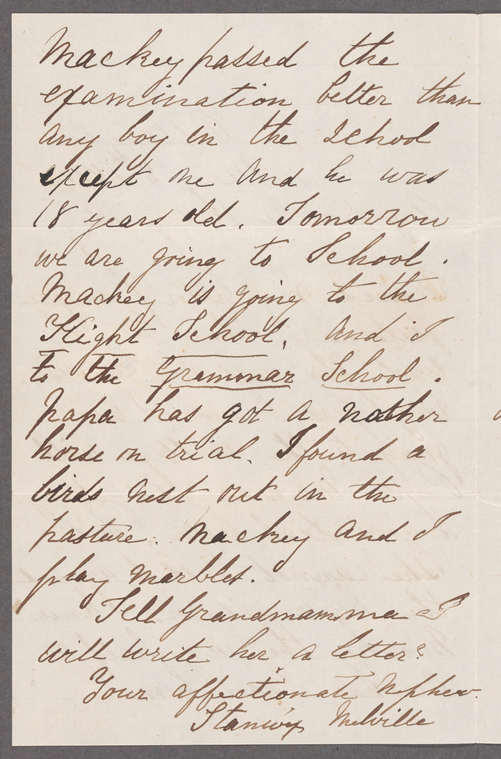 Mackey passed the
examination better than
any boy in the School
except one and he was
18 years old. Tomorrow
we are going to School.
Mackey is going to the
Hight School, and I
to the Grammar School.
papa has got a nother
horse on trial. I found a
birds nest out in the
pasture. Mackey and I
play marbles.
Tell Grandmamma I
will write her a letter?
Your affectionate Nephew.
Stanwix Melville